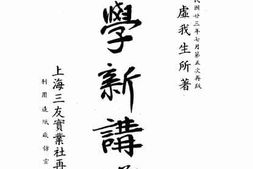 國廿三年七月第五次再版
虛我生所著
學新講
上海三友實業社再
利用造紙廠仿宣